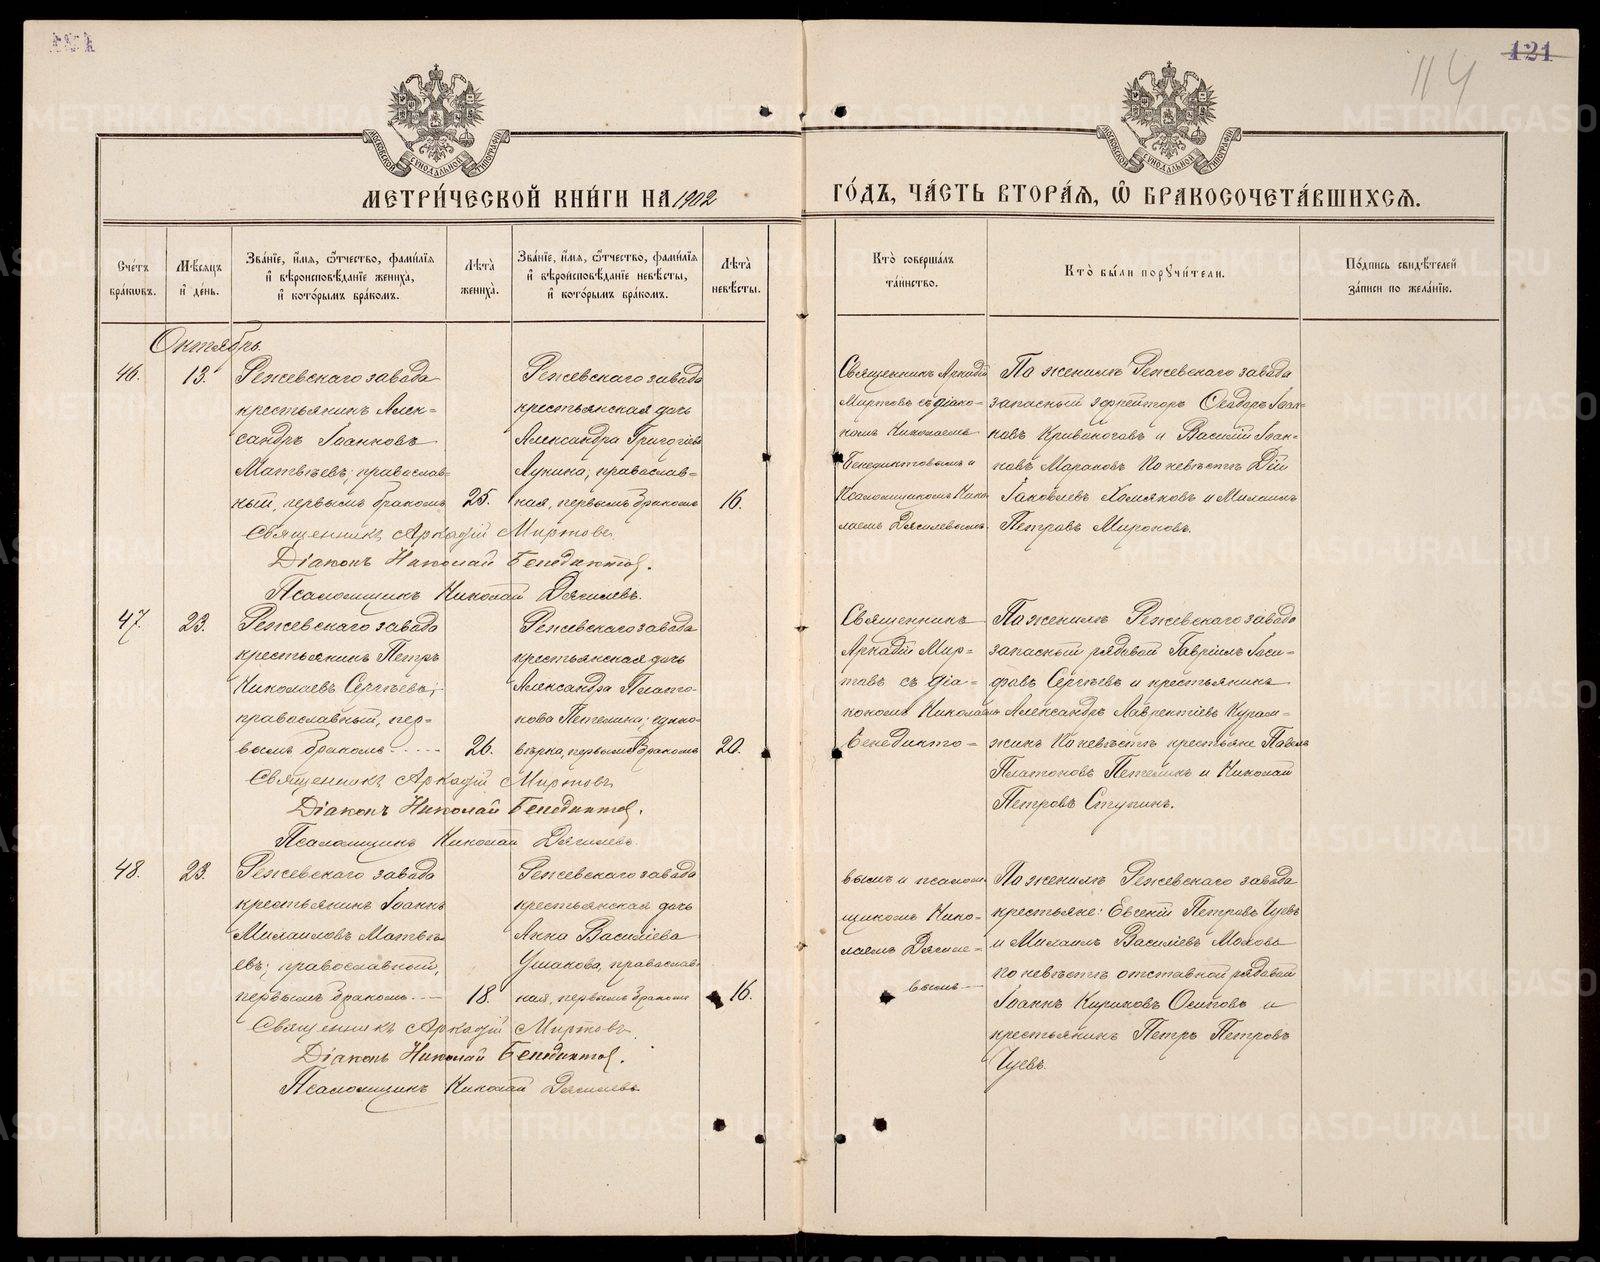 121
114
121
МОСКОВСКОЙ СѴНОДАЛЬНОЙ ТИПОГРАФІИ
МОСКОВСКОЙ СѴНОДАЛЬНОЙ ТИПОГРАФІИ
МЕТРИ́ЧЕСКОЙ КНИ́ГИ НА 1902 ГО́ДЪ, ЧА́СТЬ ВТОРА́Ѧ, Ѿ БРАКОСОЧЕТА́ВШИХСѦ.
Сче́тъ бра́кѡвъ.
Мѣ́сяцъ и҆ де́нь.
Зва́нїе, и҆́мя, ѻ҆́тчество, фами́лїя и҆ вѣроисповѣ́данїе жениха̀, и҆ кото́рымъ бра́комъ.
Лѣ́та жениха̀.
Зва́нїе, и҆́мя, ѻ҆́тчество, фами́лїя и҆ вѣроисповѣ́данїе невѣ́сты, и҆ кото́рымъ бра́комъ.
Лѣ́та невѣ́сты.
Кто̀ соверша́лъ та́инство.
Кто̀ бы́ли порꙋчи́тели.
По́дпись свидѣ́телей за́писи по жела́нїю.
Октябрь.
46.
13.
Режевскаго завода
крестьянинъ Алек-
сандръ Іоанновъ
Матвѣевъ; православ-
ный, первымъ бракомъ
25.
Режевскаго завода
крестьянская дочь
Александра Григорьева
Лукина; православ-
ная, первымъ бракомъ
16.
Священникъ Аркадій
Миртовъ съ діако-
номъ Николаемъ
Бенедиктовымъ и
Псаломщикомъ Нико-
лаемъ Дягилевымъ
По женихѣ Режевскаго завода
запасный ефрейторъ Ѳеодоръ Іоан-
новъ Кривоноговъ и Василій Іоан-
новъ Мараковъ По невѣстѣ Дій
Іаковлевъ Хомяковъ и Михаилъ
Петровъ Мироновъ.
Священникъ Аркадій Миртовъ
Діаконъ Николай Бенедиктов.
Псаломщикъ Николай Дягилевъ.
47.
23.
Режевскаго завода
крестьянинъ Петръ
Николаевъ Сергѣевъ;
православный, пер-
вымъ бракомъ
26.
Режевскаго завода
крестьянская дочь
Александра Плато-
нова Петелина; едино-
вѣрка, первымъ бракомъ
20.
Священникъ
Аркадій Мир-
товъ съ діа-
кономъ Николаемъ
Бенедикто-
По женихѣ Режевскаго завода
запасный рядовой Гавріилъ Іоси-
фовъ Сергѣевъ и крестьянинъ
Александръ Лаврентіевъ Курам-
жинъ По невѣстѣ крестьяне Павелъ
Платоновъ Петелинъ и Николай
Петровъ Ступинъ.
Священникъ Аркадій Миртовъ
Діаконъ Николай Бенедиктов.
Псаломщикъ Николай Дягилевъ.
48.
23.
Режевскаго завода
крестьянинъ Іоаннъ
Михаиловъ Матвѣ-
евъ; православный,
первымъ бракомъ
18.
Режевскаго завода
крестьянская дочь
Анна Василіева
Ушакова, православ-
ная, первымъ бракомъ
16.
вымъ и псалом-
щикомъ Нико-
лаемъ Дягиле-
вымъ
По женихѣ Режевскаго завода
крестьяне: Евгеній Петровъ Чуевъ
и Михаилъ Василіевъ Моховъ
По невѣстѣ отставной рядовой
Іоаннъ Кириковъ Осиповъ и
крестьянинъ Петръ Петровъ
Чуевъ.
Священникъ Аркадій Миртовъ
Діаконъ Николай Бенедиктов.
Псаломщикъ Николай Дягилевъ
METRIKI.GASO-URAL.RU